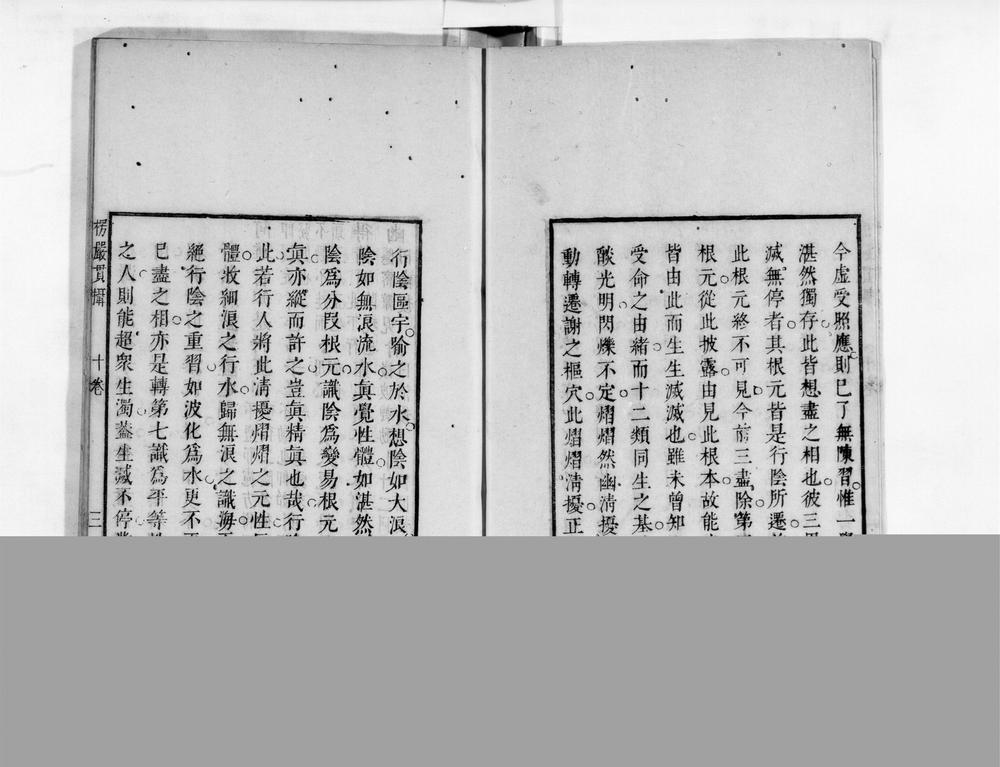 今虛受照應則已了無陳習惟一
湛然獨存此皆想盡之相也彼三
滅無停者其根元皆是行陰所遷
此根元終不可見今前三盡除第
根元從此披露由見此根本故能
皆由此而生生滅滅也雖未曾知
受命之由緒而十二類同生之基
酸光明閃爍不定熠熠然幽清擾
動轉遷謝之樞穴此熠熠清擾正
行陰區宇喻之於水想陰如大浪
陰如無浪流水眞覺性體如湛然
陰為分段根元識陰為變易根元
眞亦縱而許之豈眞精眞也哉行
此若行人將此清擾熠熠之元性
體收細浪之行水歸無浪之識海
絕行陰之重習如波化為水更不
已盡之相亦是轉第七識為平等
之人則能超衆生濁葢生滅不停
楞嚴貫攝
十卷
三